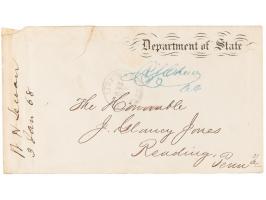 Department of State
The Honorable
J. Glancy Jones
Reading,
Penn<sup>a</sup>
W H Seward
3 Jan 68